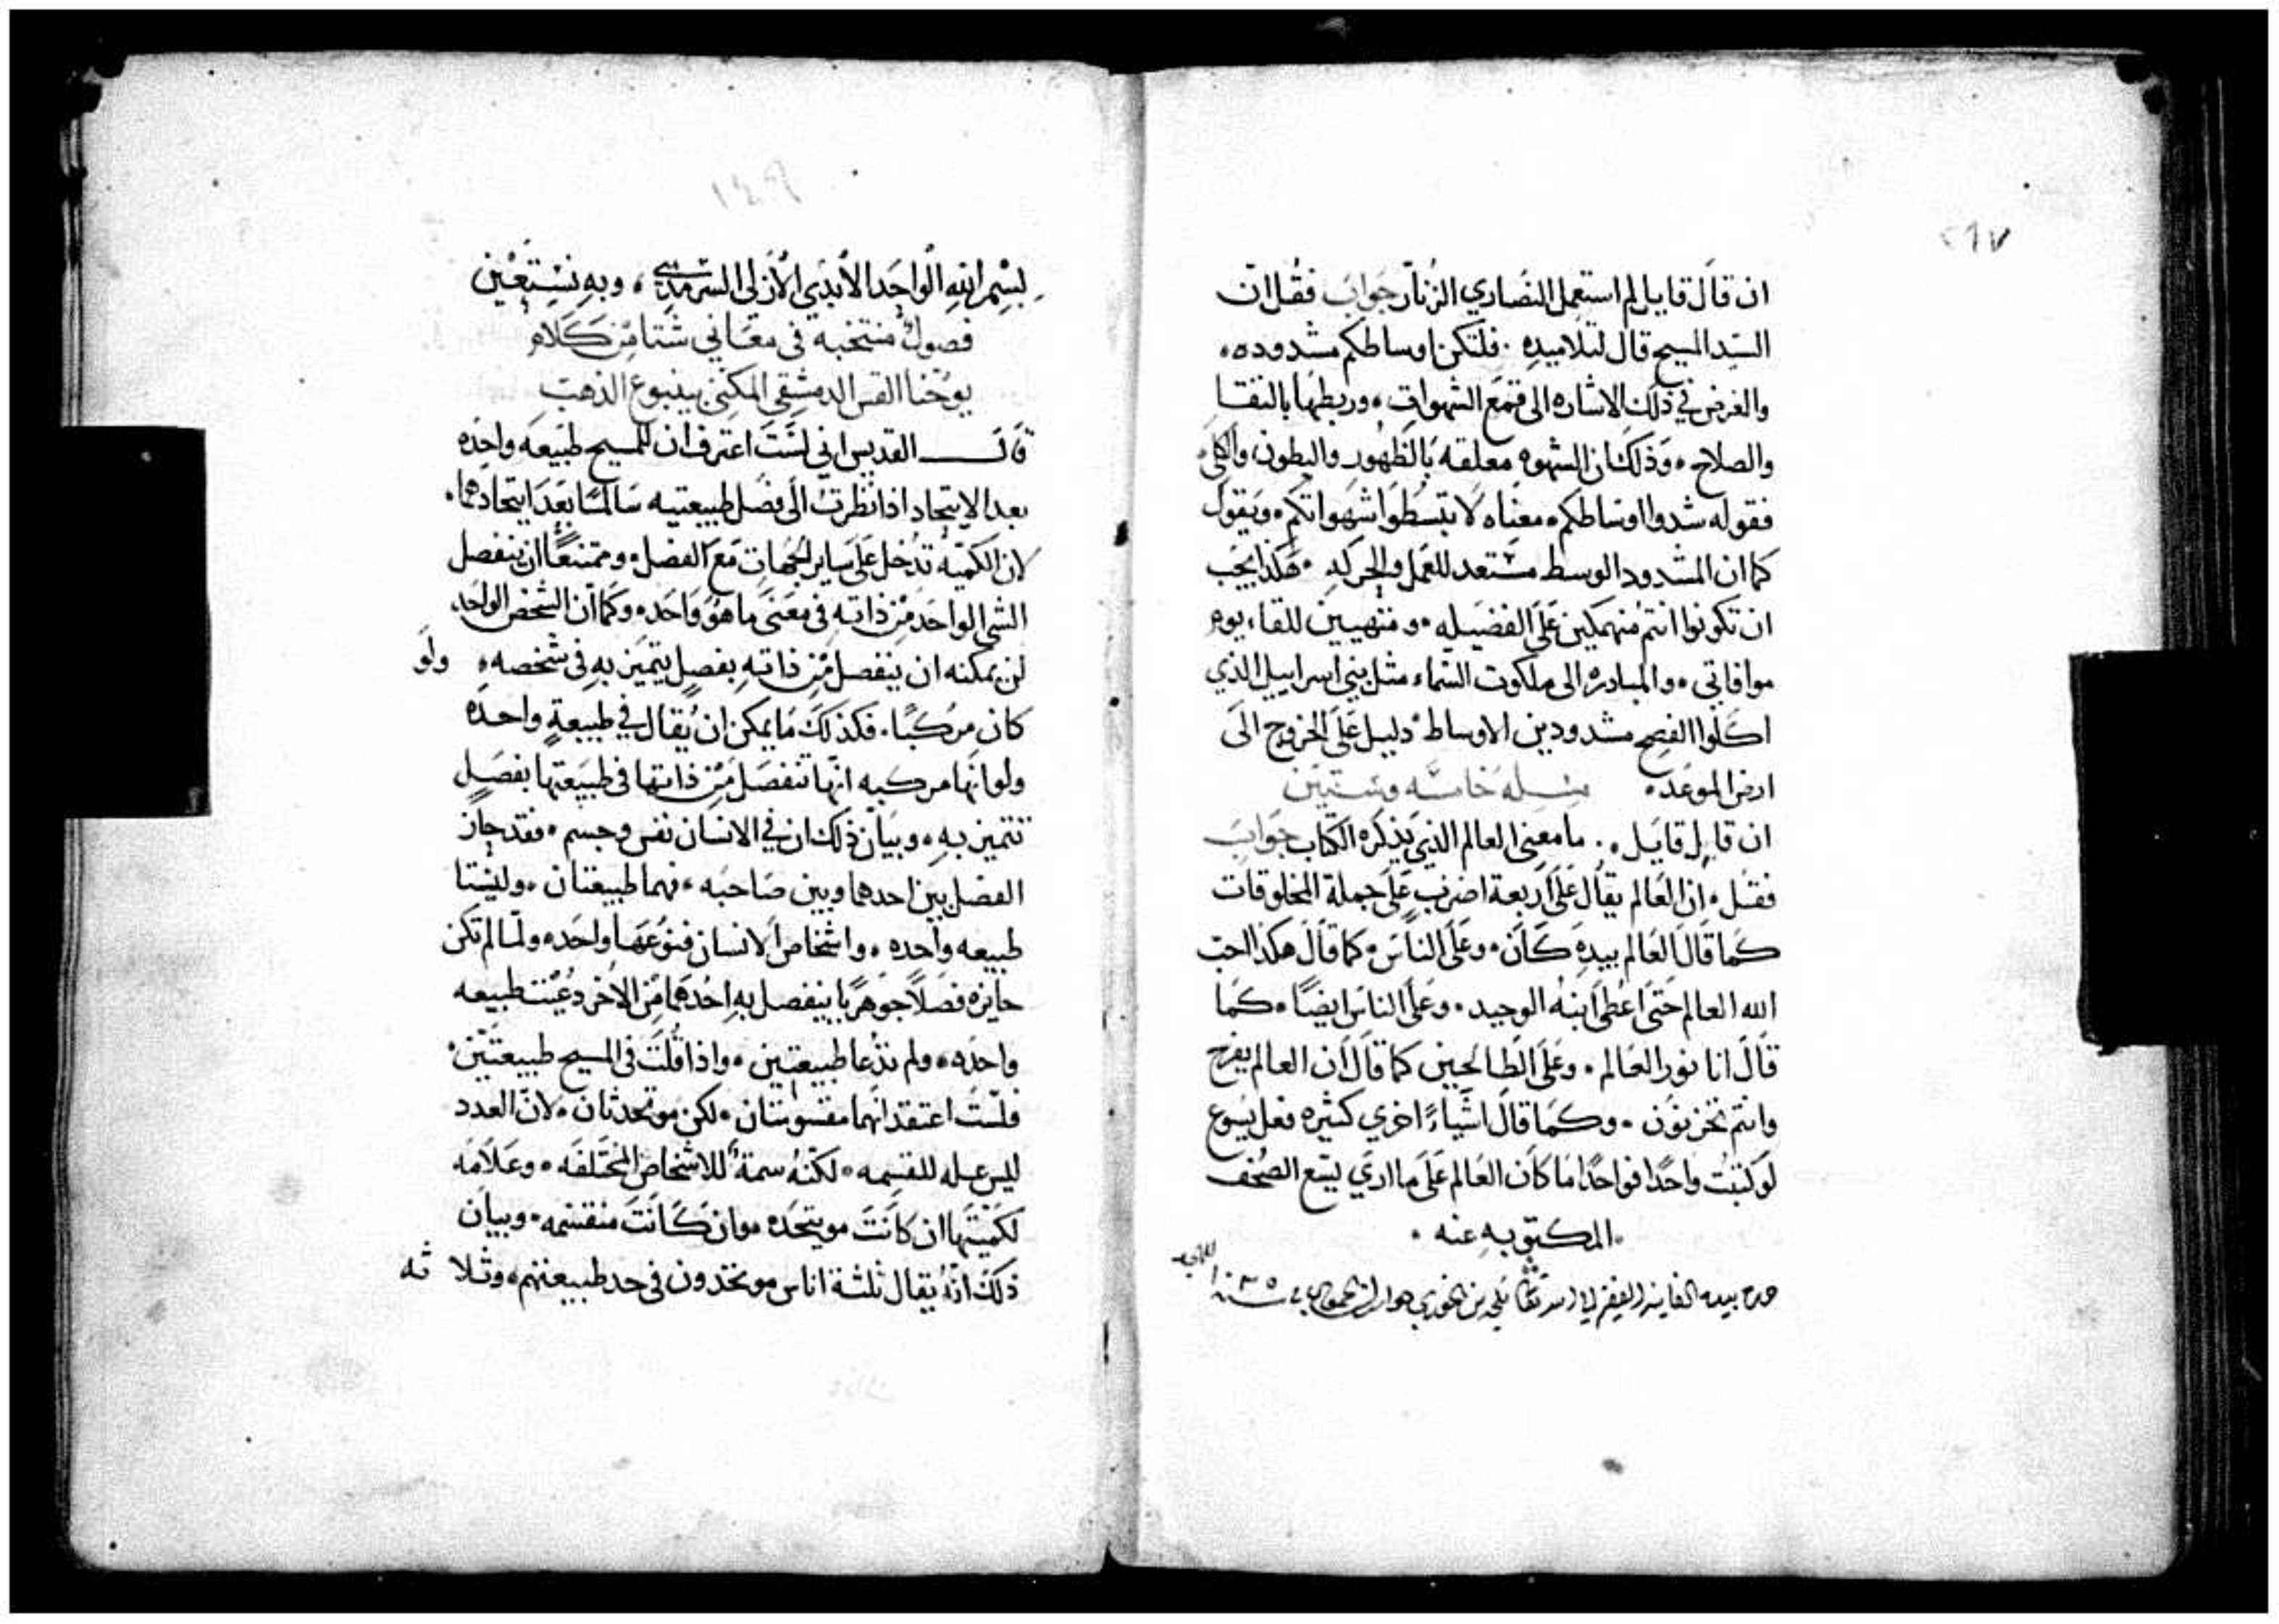 ٢٦٧
ان قال قايل لم استعمل النصاري الزنار جواب فقل ان
السيد المسيح قال لتلاميده . فلتكن اوساطكم مشدوده .
والغرض في ذلك الاشاره الى قمع الشهوات . وربطها بالنقا
والصلاح . وذلك ان الشهوه معلقه بالظهور والبطون والكلى .
فقوله شدوا اوساطكم . معناه لا تبسطوا شهواتكم . ويقول
كما ان المشدود الوسط مستعد للعمل والحركه . هكذا يجب
ان تكونوا انتم منهمكين على الفضيله . ومتهيين للقاء يوم
موافاتي . والمبادره الى ملكوت السماء مثل بني اسراييل الذي
اكلوا الفصح مشدودين الاوساط . دليل على الخروج الى
ارض الموعد . مسله خامسه وستين
ان قايل قايل . ما معنى العالم الذي يذكره الكتاب جواب
فقل . ان العالم يقال على اربعة اضرب على جملة المخلوقات
كما قال العالم بيده كان . وعلى الناس . كما قال هكذا احب
الله العالم حتى اعطى ابنه الوحيد . وعلى الناس ايضا . كما
قال انا نور العالم . وعلى الطالحين كما قال ان العالم يفرح
وانتم تحزنون . وكما قال اشياء اخري كثيره فعل يسوع
لو كتبت واحدا فواحدا ما كان العالم على ما اري يسع الصحف
. المكتوبه عنه .
بيده الفانيه الفقير الى بن الخوري
بسم الله الواحد الابدي الازلي السرمدي ، وبه نستعين
فصول منتخبه في معاني شتا من كلام
يوحنا القس الدمشقي المكنى بينبوع الذهب
قال القديس اني لست اعترف ان للمسيح طبيعه واحده
بعد الاتحاد اذا نظرت الى فصل طبيعتيه سالما بعد اتحادهما .
لان الكميه تدخل على ساير الجهات مع الفصل . وممتنعا ان ينفصل
الشي الواحد من ذاته في معنى ما هو واحد . وكما ان الشخص الواحد
لن يمكنه ان ينفصل من ذاته بفصل يتميز به في شخصه . ولو
كان مركبا . فكذلك ما يمكن ان يقال في طبيعة واحده
ولو انها مركبه انها تنفصل من ذاتها في طبيعتها بفصل
تتميز به . وبيان ذلك ان في الانسان نفس وجسم . فقد جاز
الفصل بين احدهما وبين صاحبه . فهما طبيعتان . وليستا
طبيعه واحده . واشخاص الانسان فنوعها واحد . ولما لم تكن
حايزه فصلا جوهريا ينفصل به احدهما من الاخر دعيت طبيعه
واحده . ولم تدعا طبيعتين . واذا قلت في المسيح طبيعتين .
فلست اعتقد انهما مقسومتان . لكن موتحدتان . لان العدد
ليس عله للقسمه . لكنه سمة للاشخاص المختلفه . وعلامه
لكميتها ان كانت مويتحده وان كانت منقسمه . وبيان
ذلك انه يقال ثلثة اناس موتحدون في حد طبيعتهم . وثلاثه